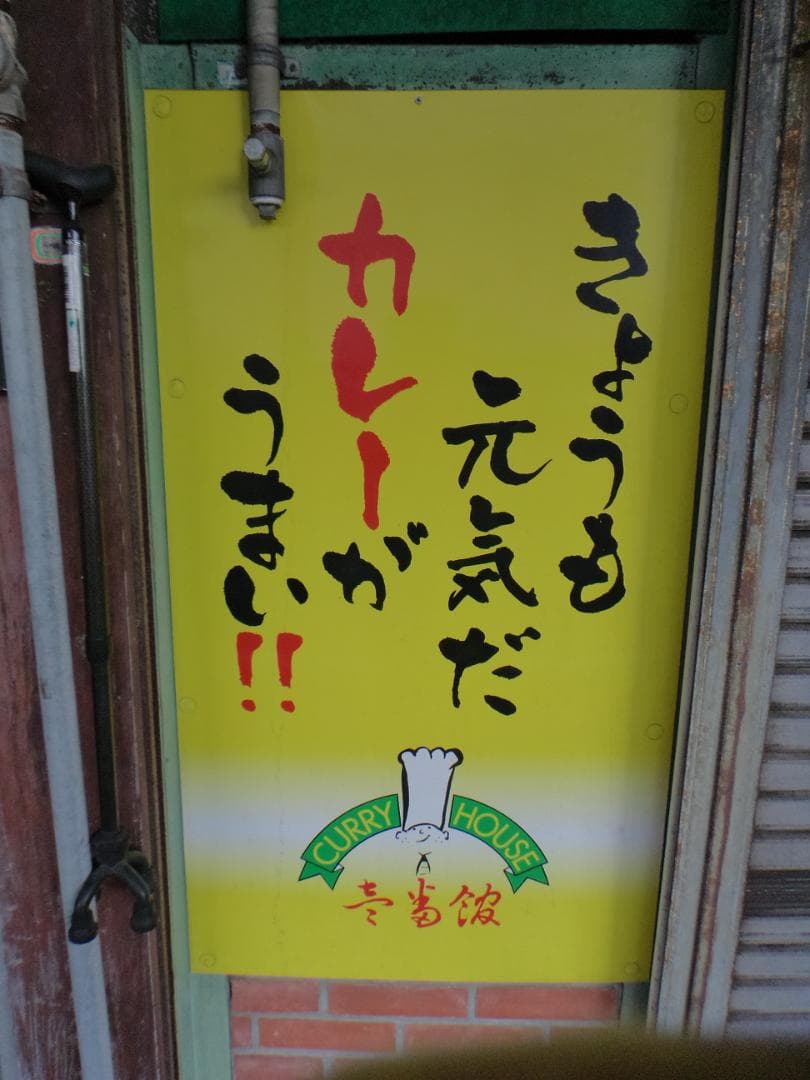 きょうも
元気だ
カレーが
うまい!!
CURRY HOUSE
壱番館